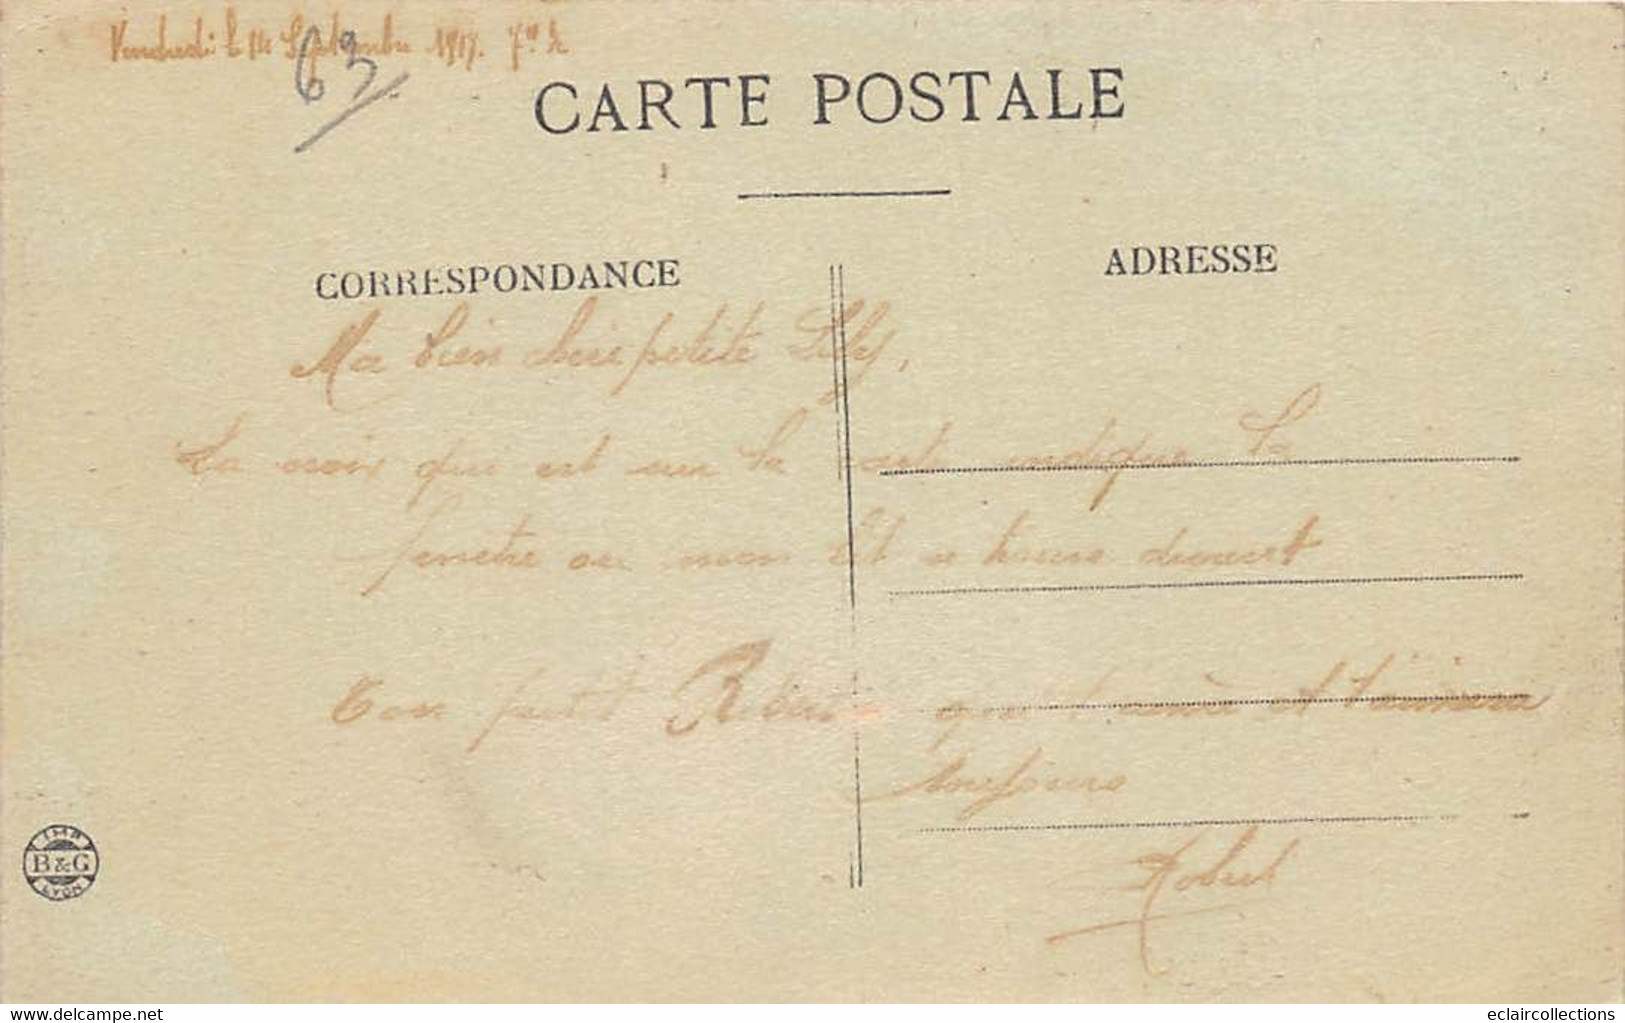 Vendredi le 14 Septembre 1917.
63
CARTE POSTALE
CORRESPONDANCE
ADRESSE
Ma bien chère petite Lily,
La croix qui est sur la carte indique la
fenetre ou mon lit se trouve devant
Ton petit qui t'aime et t'aimera
toujours
Robert
IMP.
B & G
LYON
eclaircollections